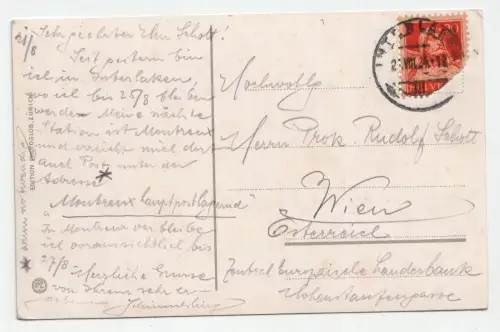 21/8
Sehr geehrter Herr Schott!
Seit gestern bin
ich in Interlaken,
wo ich bis 25/8 bleiben
werde. Meine nächste
Station ist Montreux
und erreicht mich dort
auch Post unter der
Adresse
"Montreux hauptpostlagernd"
In Montreux verbleibe
ich voraussichtlich bis
27/8
Herzliche Grüsse
von Ihrem sehr er-
Hochwohlg
Herrn Prok. Rudolf Schott
Wien
Österreich
Zentral Europäische Länderbank
Hohenstaufengasse